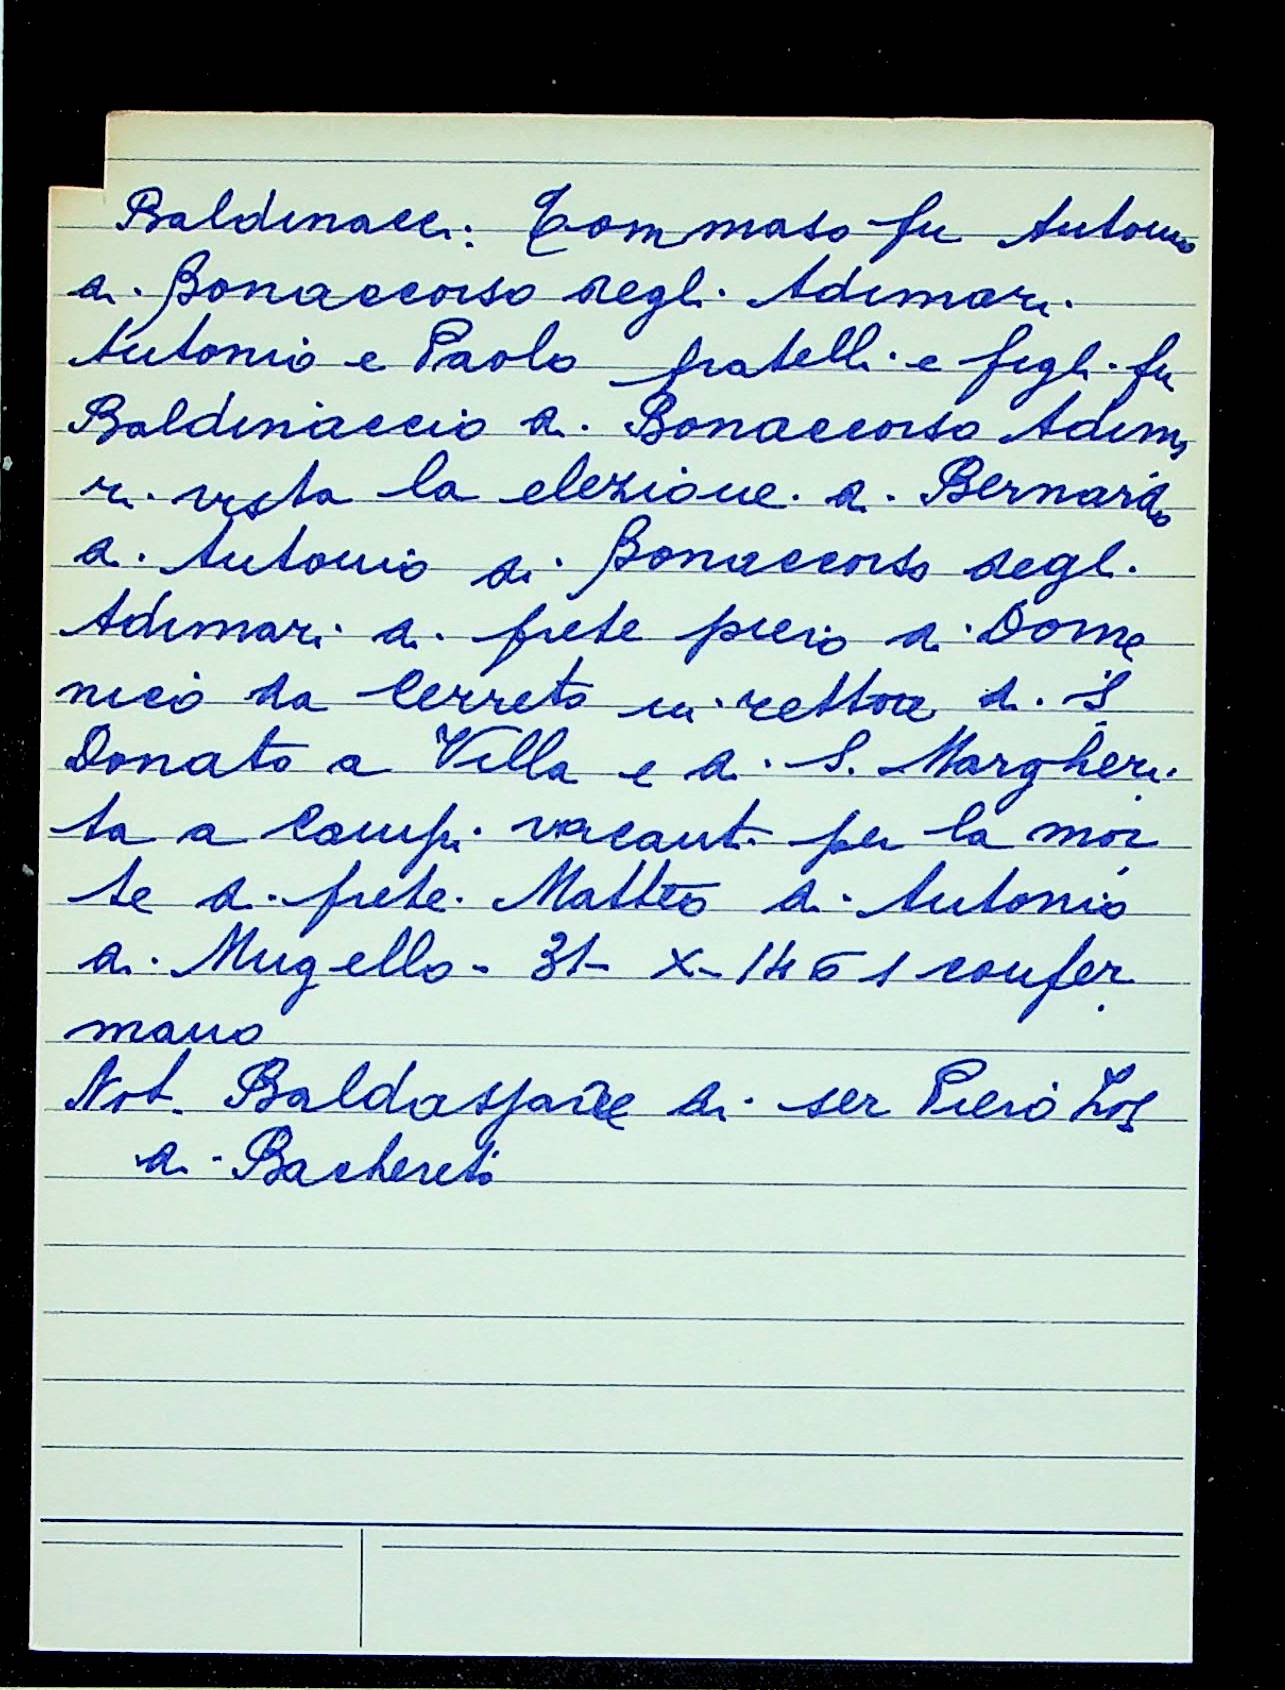 Baldinacci: Tommaso fu Antonio
di Bonaccorso degli Adimari.
Antonio e Paolo fratelli e figli fu
Baldinaccio di Bonaccorso Adima
ri vista la elezione di Bernardo
di Antonio di Bonaccorso degli
Adimari di prete piero di Dome
nico da Cerreto in rettore di S.
Donato a Villa e di S. Margheri
ta a Campi vacanti per la mor
te di prete Matteo di Antonio
di Mugello - 31 - X - 1451 confer
mano
Not. Baldassarre di ser Piero
di Bachereto